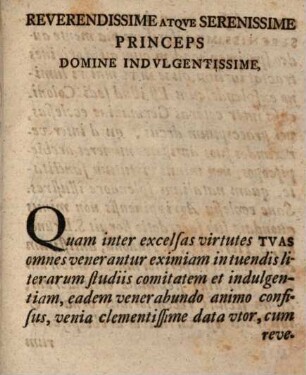 REVERENDISSIME ATQVE SERENISSIME
PRINCEPS
DOMINE INDVLGENTISSIME,
Quam inter excelſas virtutes TVAS
omnes venerantur eximiam in tuendis li-
terarum ſtudiis comitatem et indulgen-
tiam, eadem venerabundo animo confi-
ſus, venia clementiſſime data vtor, cum
reve-